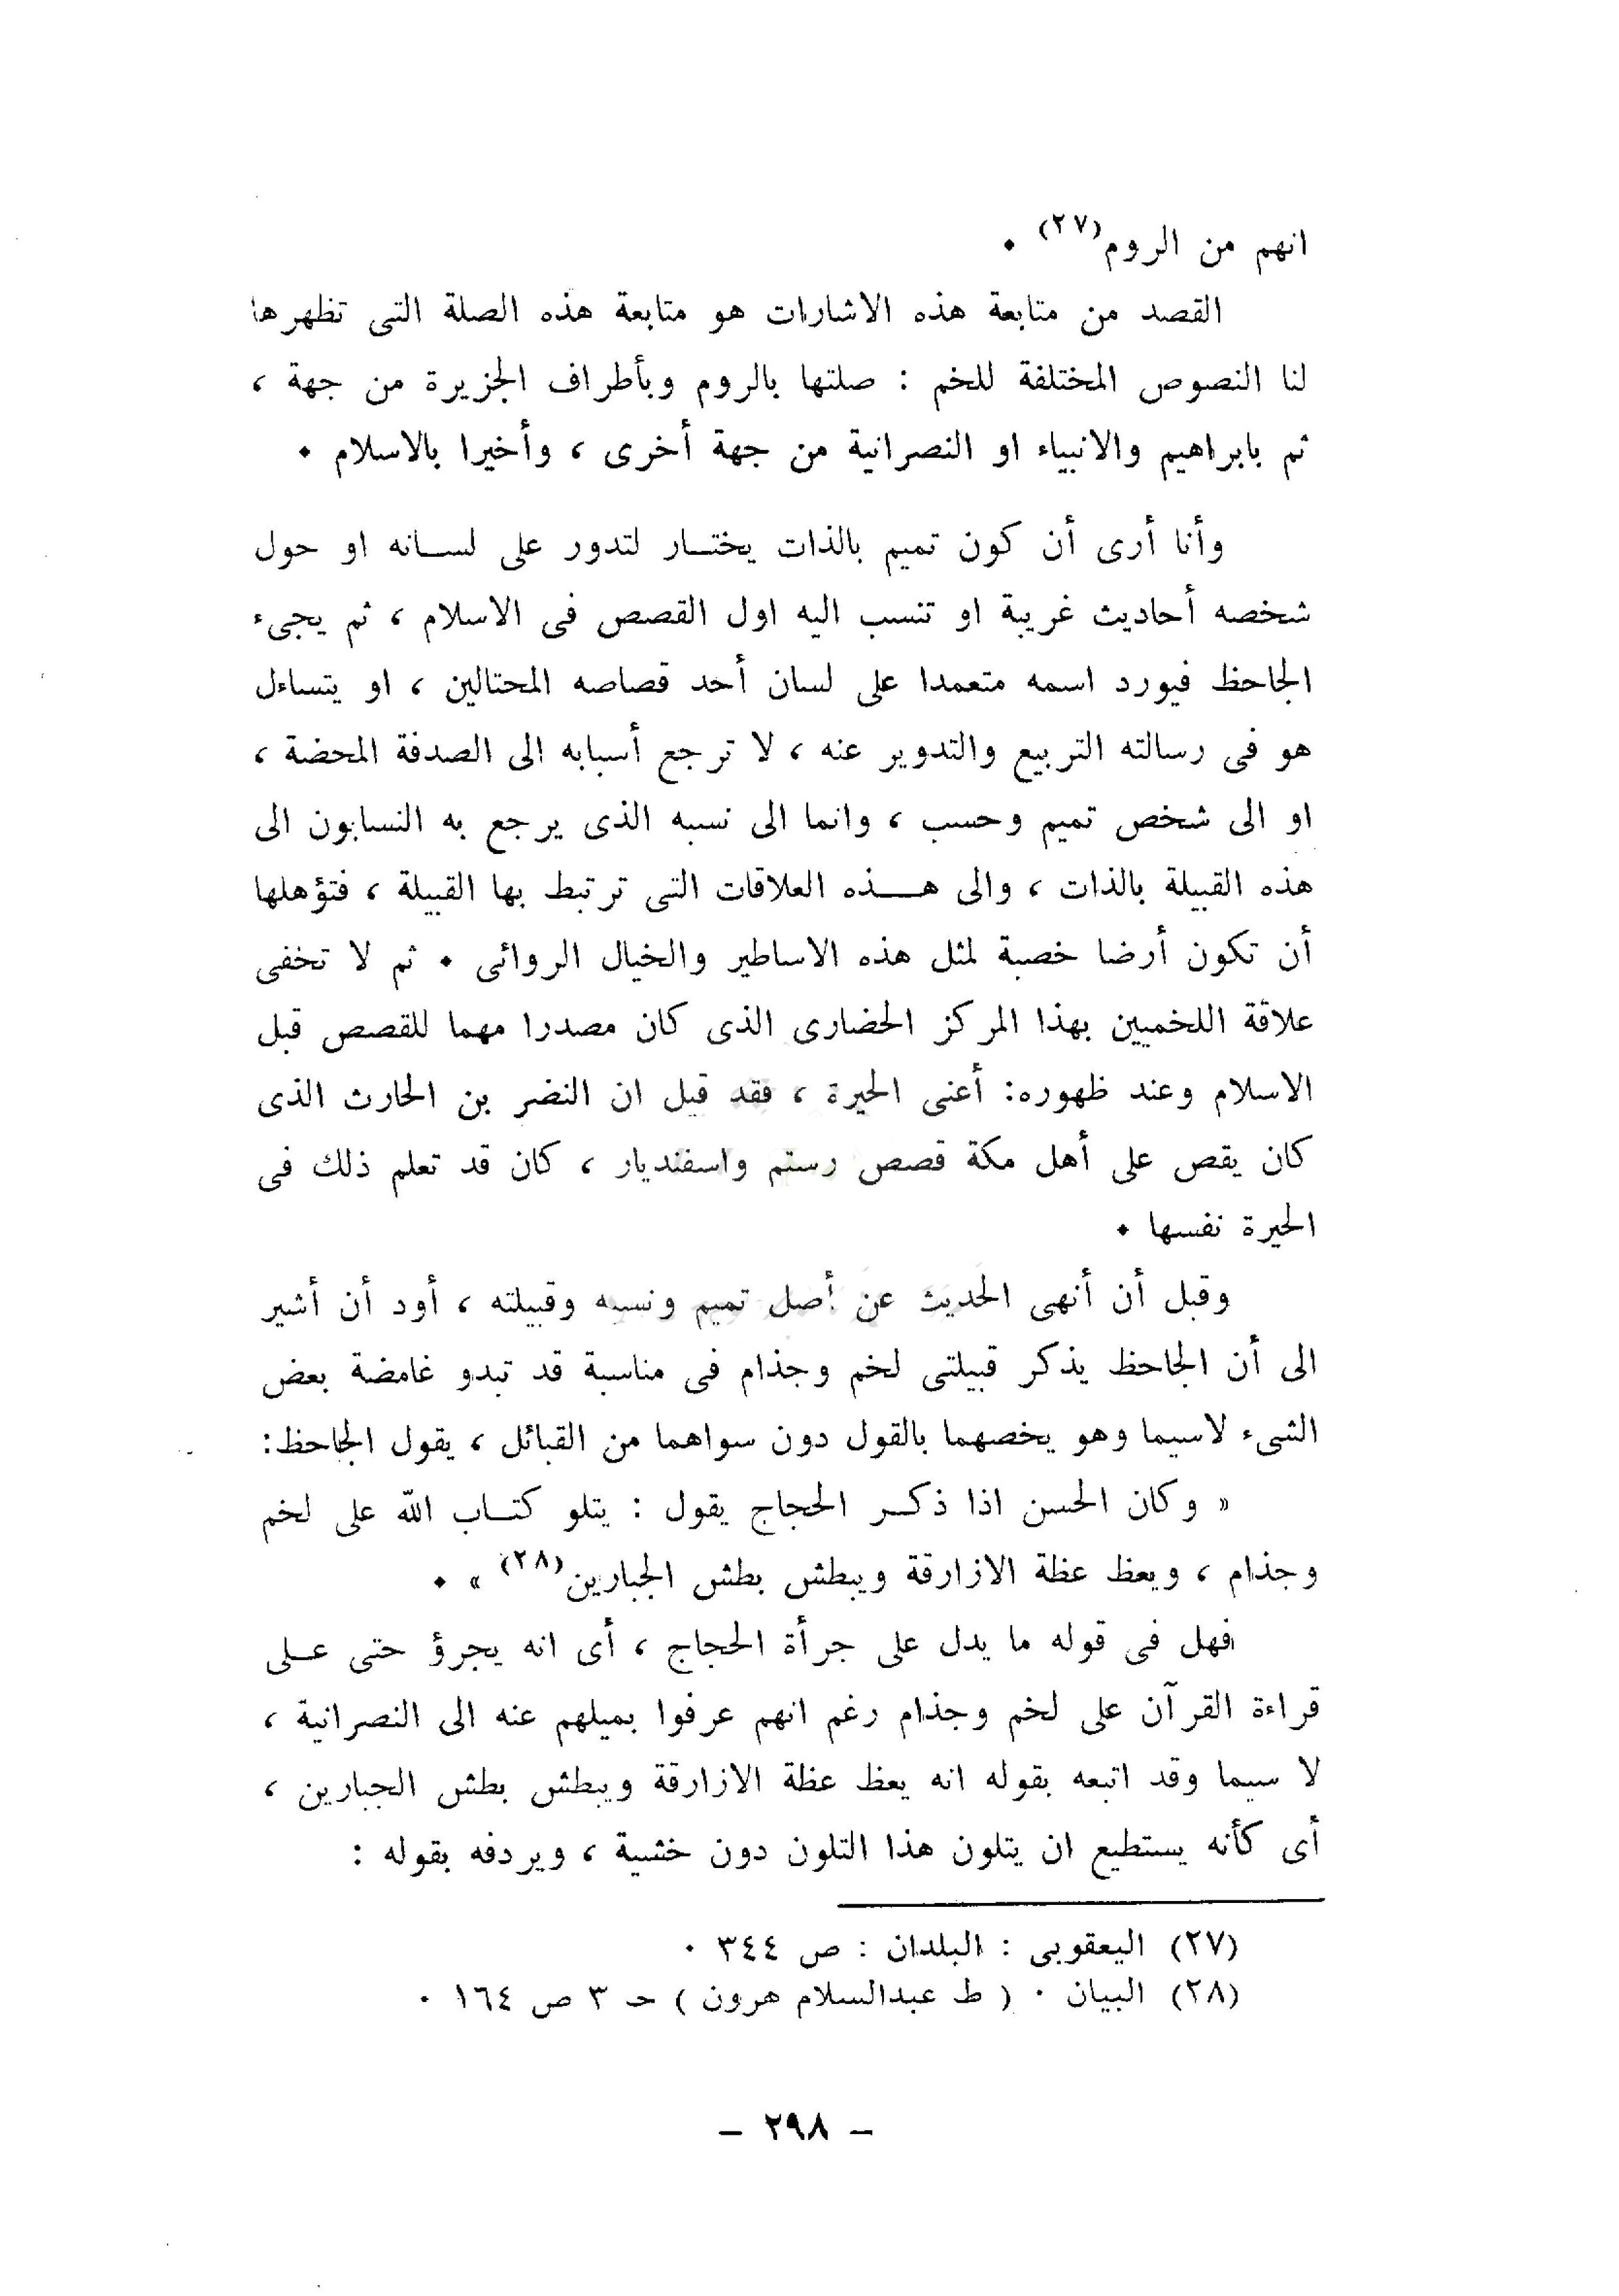 انهم من الروم(٢٧) ٠
القصد من متابعة هذه الاشارات هو متابعة هذه الصلة التى تظهرها
لنا النصوص المختلفة للخم : صلتها بالروم وبأطراف الجزيرة من جهة ،
ثم بابراهيم والانبياء او النصرانية من جهة أخرى ، وأخيرا بالاسلام ٠
وأنا أرى أن كون تميم بالذات يختـار لتدور على لسـانه او حول
شخصه أحاديث غريبة او تنسب اليه اول القصص فى الاسلام ، ثم يجىء
الجاحظ فيورد اسمه متعمدا على لسان أحد قصاصه المحتالين ، او يتساءل
هو فى رسالته التربيع والتدوير عنه ، لا ترجع أسبابه الى الصدفة المحضة ،
او الى شخص تميم وحسب ، وانما الى نسبه الذى يرجع به النسابون الى
هذه القبيلة بالذات ، والى هـــذه العلاقات التى ترتبط بها القبيلة ، فتؤهلها
أن تكون أرضا خصبة لمثل هذه الاساطير والخيال الروائى ٠ ثم لا تخفى
علاقة اللخميين بهذا المركز الحضارى الذى كان مصدرا مهما للقصص قبل
الاسلام وعند ظهوره: أعنى الحيرة ، فقد قيل ان النضر بن الحارث الذى
كان يقص على أهل مكة قصص رستم واسفنديار ، كان قد تعلم ذلك فى
الحيرة نفسها ٠
وقبل أن أنهى الحديث عن أصل تميم ونسبه وقبيلته ، أود أن أشير
الى أن الجاحظ يذكر قبيلتى لخم وجذام فى مناسبة قد تبدو غامضة بعض
الشىء لاسيما وهو يخصهما بالقول دون سواهما من القبائل ، يقول الجاحظ:
« وكان الحسن اذا ذكـر الحجاج يقول : يتلو كتـاب الله على لخم
وجذام ، ويعظ عظة الازارقة ويبطش بطش الجبارين(٢٨) » ٠
فهل فى قوله ما يدل على جرأة الحجاج ، أى انه يجرؤ حتى عـلى
قراءة القرآن على لخم وجذام رغم انهم عرفوا بميلهم عنه الى النصرانية ،
لا سيما وقد اتبعه بقوله انه يعظ عظة الازارقة ويبطش بطش الجبارين ،
أى كأنه يستطيع ان يتلون هذا التلون دون خشية ، ويردفه بقوله :
(٢٧) اليعقوبى : البلدان : ص ٣٤٤ ٠
(٢٨) البيان ٠ ( ط عبدالسلام هرون ) حـ ٣ ص ١٦٤ ٠
– ٢٩٨ –